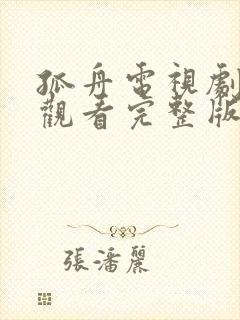 孤舟電視劇
觀看完整版
張潘麗